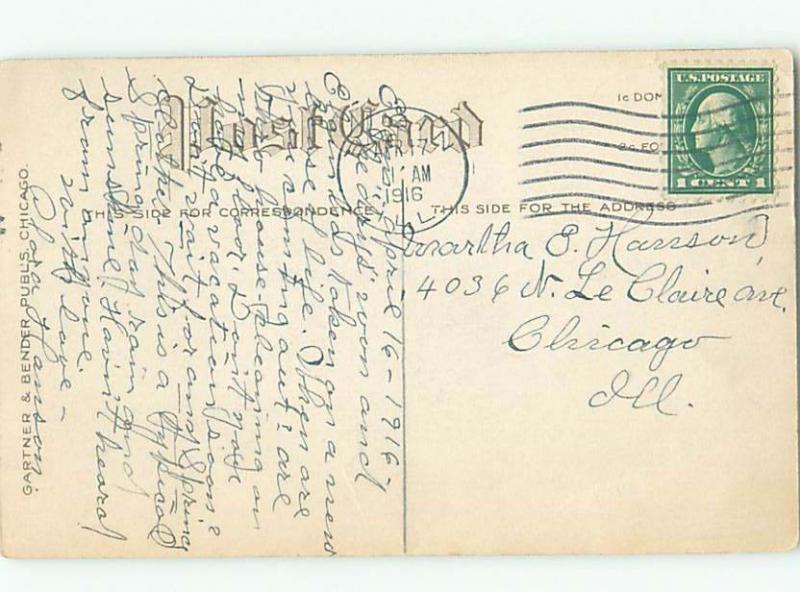 Post Card
THIS SIDE FOR CORRESPONDENCE
THIS SIDE FOR THE ADDRESS
1c DOM
2c FO
U.S. POSTAGE
1 CENT 1
APR 17
AM
1916
ILL.
GARTNER & BENDER, PUBLS. CHICAGO.
Martha E. Hanson,
4036 N. Le Claire ave.
Chicago
Ill.
April 16-1916-
room and
has taken on a new
lease of life. When are
you coming out? are
house-cleaning on
floor. Don't you
a vacation soon?
wait for and Spring
. This is a typical
Spring day, rain and
sunshine. Havn't heard
from anyone.
with love-
Clara Hanson.